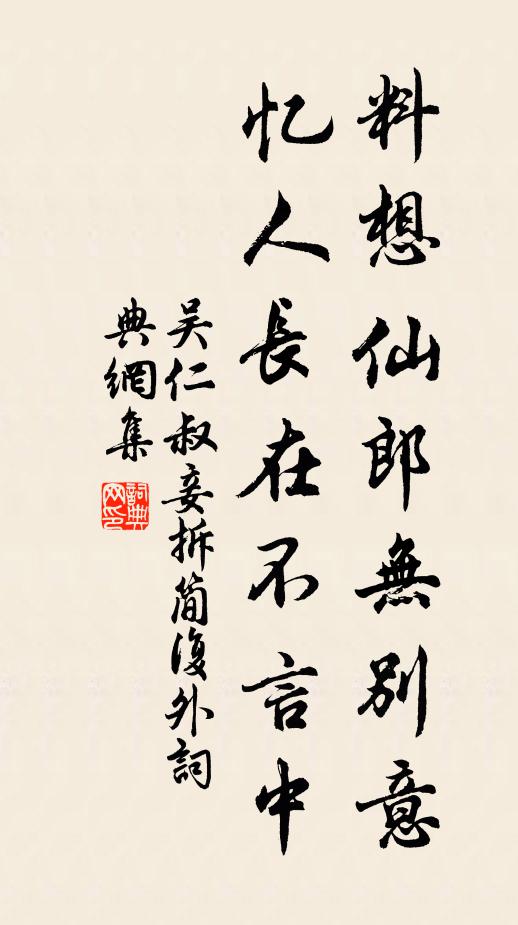 料想仙郎無別意
忆人長在不言中
吴仁叔妾拆简復外詞
典網集
詞典网印